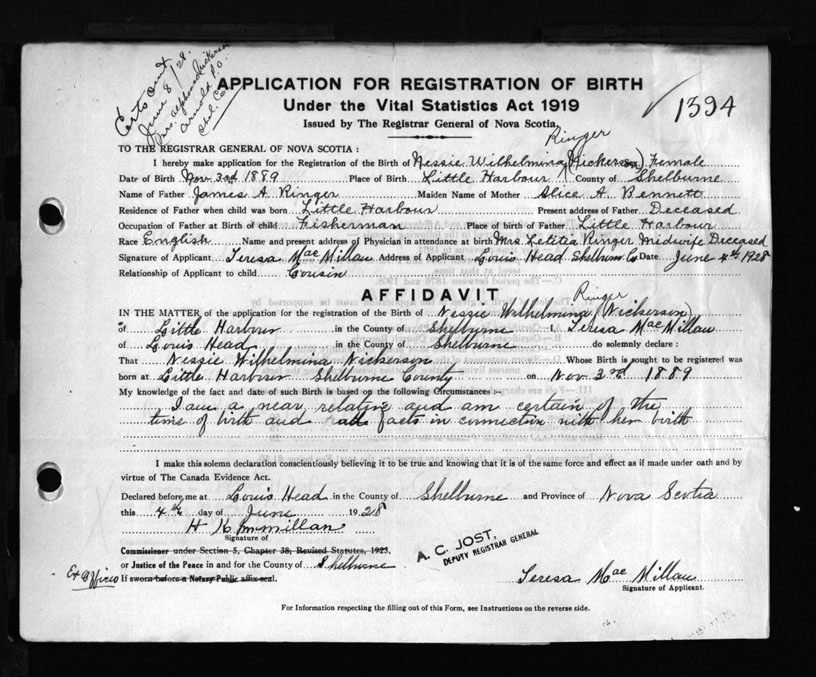 Certs out
June 8/28.
Mrs. Alphons Nickerson
Arnold P.O.
Shel. Co.
APPLICATION FOR REGISTRATION OF BIRTH
1394
Under the Vital Statistics Act 1919
Issued by The Registrar General of Nova Scotia.
Ringer
TO THE REGISTRAR GENERAL OF NOVA SCOTIA :
I hereby make application for the Registration of the Birth of Nessie Wilhelmina (Nickerson) Female
Date of Birth Nov. 3rd 1889 Place of Birth Little Harbour County of Shelburne
Name of Father James A. Ringer Maiden Name of Mother Alice A. Bennett
Residence of Father when child was born Little Harbour Present address of Father Deceased
Occupation of Father at Birth of child Fisherman Place of birth of Father Little Harbour
Race English Name and present address of Physician in attendance at birth Mrs. Letitia Ringer Midwife Deceased
Signature of Applicant Teresa MacMillan Address of Applicant Louis Head Shelburn Co Date June 4th 1928
Relationship of Applicant to child Cousin
AFFIDAVIT
Ringer
IN THE MATTER of the application for the registration of the Birth of Nessie Wilhelmina (Nickerson)
of Little Harbour in the County of Shelburne I, Teresa MacMillan
of Louis Head in the County of Shelburne do solemnly declare :
That Nessie Wilhelmina Nickerson Whose Birth is sought to be registered was
born at Little Harbour Shelburne County on Nov. 3rd 1889
My knowledge of the fact and date of such Birth is based on the following Circumstances :-
I am a near relative and am certain of the
time of birth and all facts in connection with her birth
I make this solemn declaration conscientiously believing it to be true and knowing that it is of the same force and effect as if made under oath and by
virtue of The Canada Evidence Act.
Declared before me at Louis Head in the County of Shelburne and Province of Nova Scotia
this 4th day of June 1928
H K McMillan
Signature of
Commissioner under Section 5, Chapter 38, Revised Statutes, 1923,
A. C. JOST,
DEPUTY REGISTRAR GENERAL
or Justice of the Peace in and for the County of Shelburne
Ex Officio If sworn before a Notary Public affix seal.
Teresa MacMillan
Signature of Applicant.
For Information respecting the filling out of this Form, see Instructions on the reverse side.